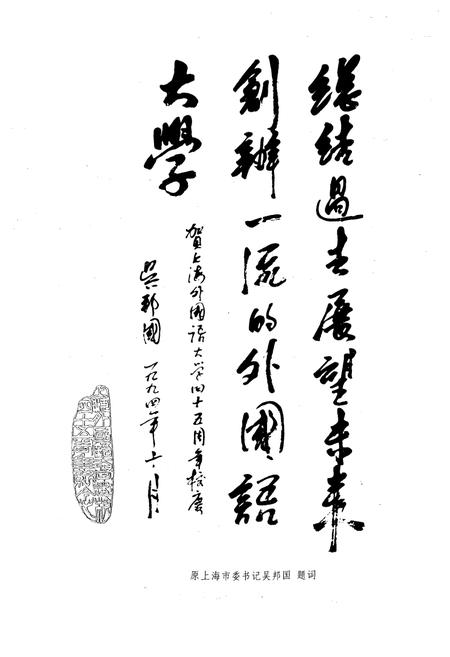 總結過去展望未來
創辦一流的外國語
大學
賀上海外國語大学四十五周年校慶
吴邦國 一九九四年十一月
原上海市委书记吴邦国 题词